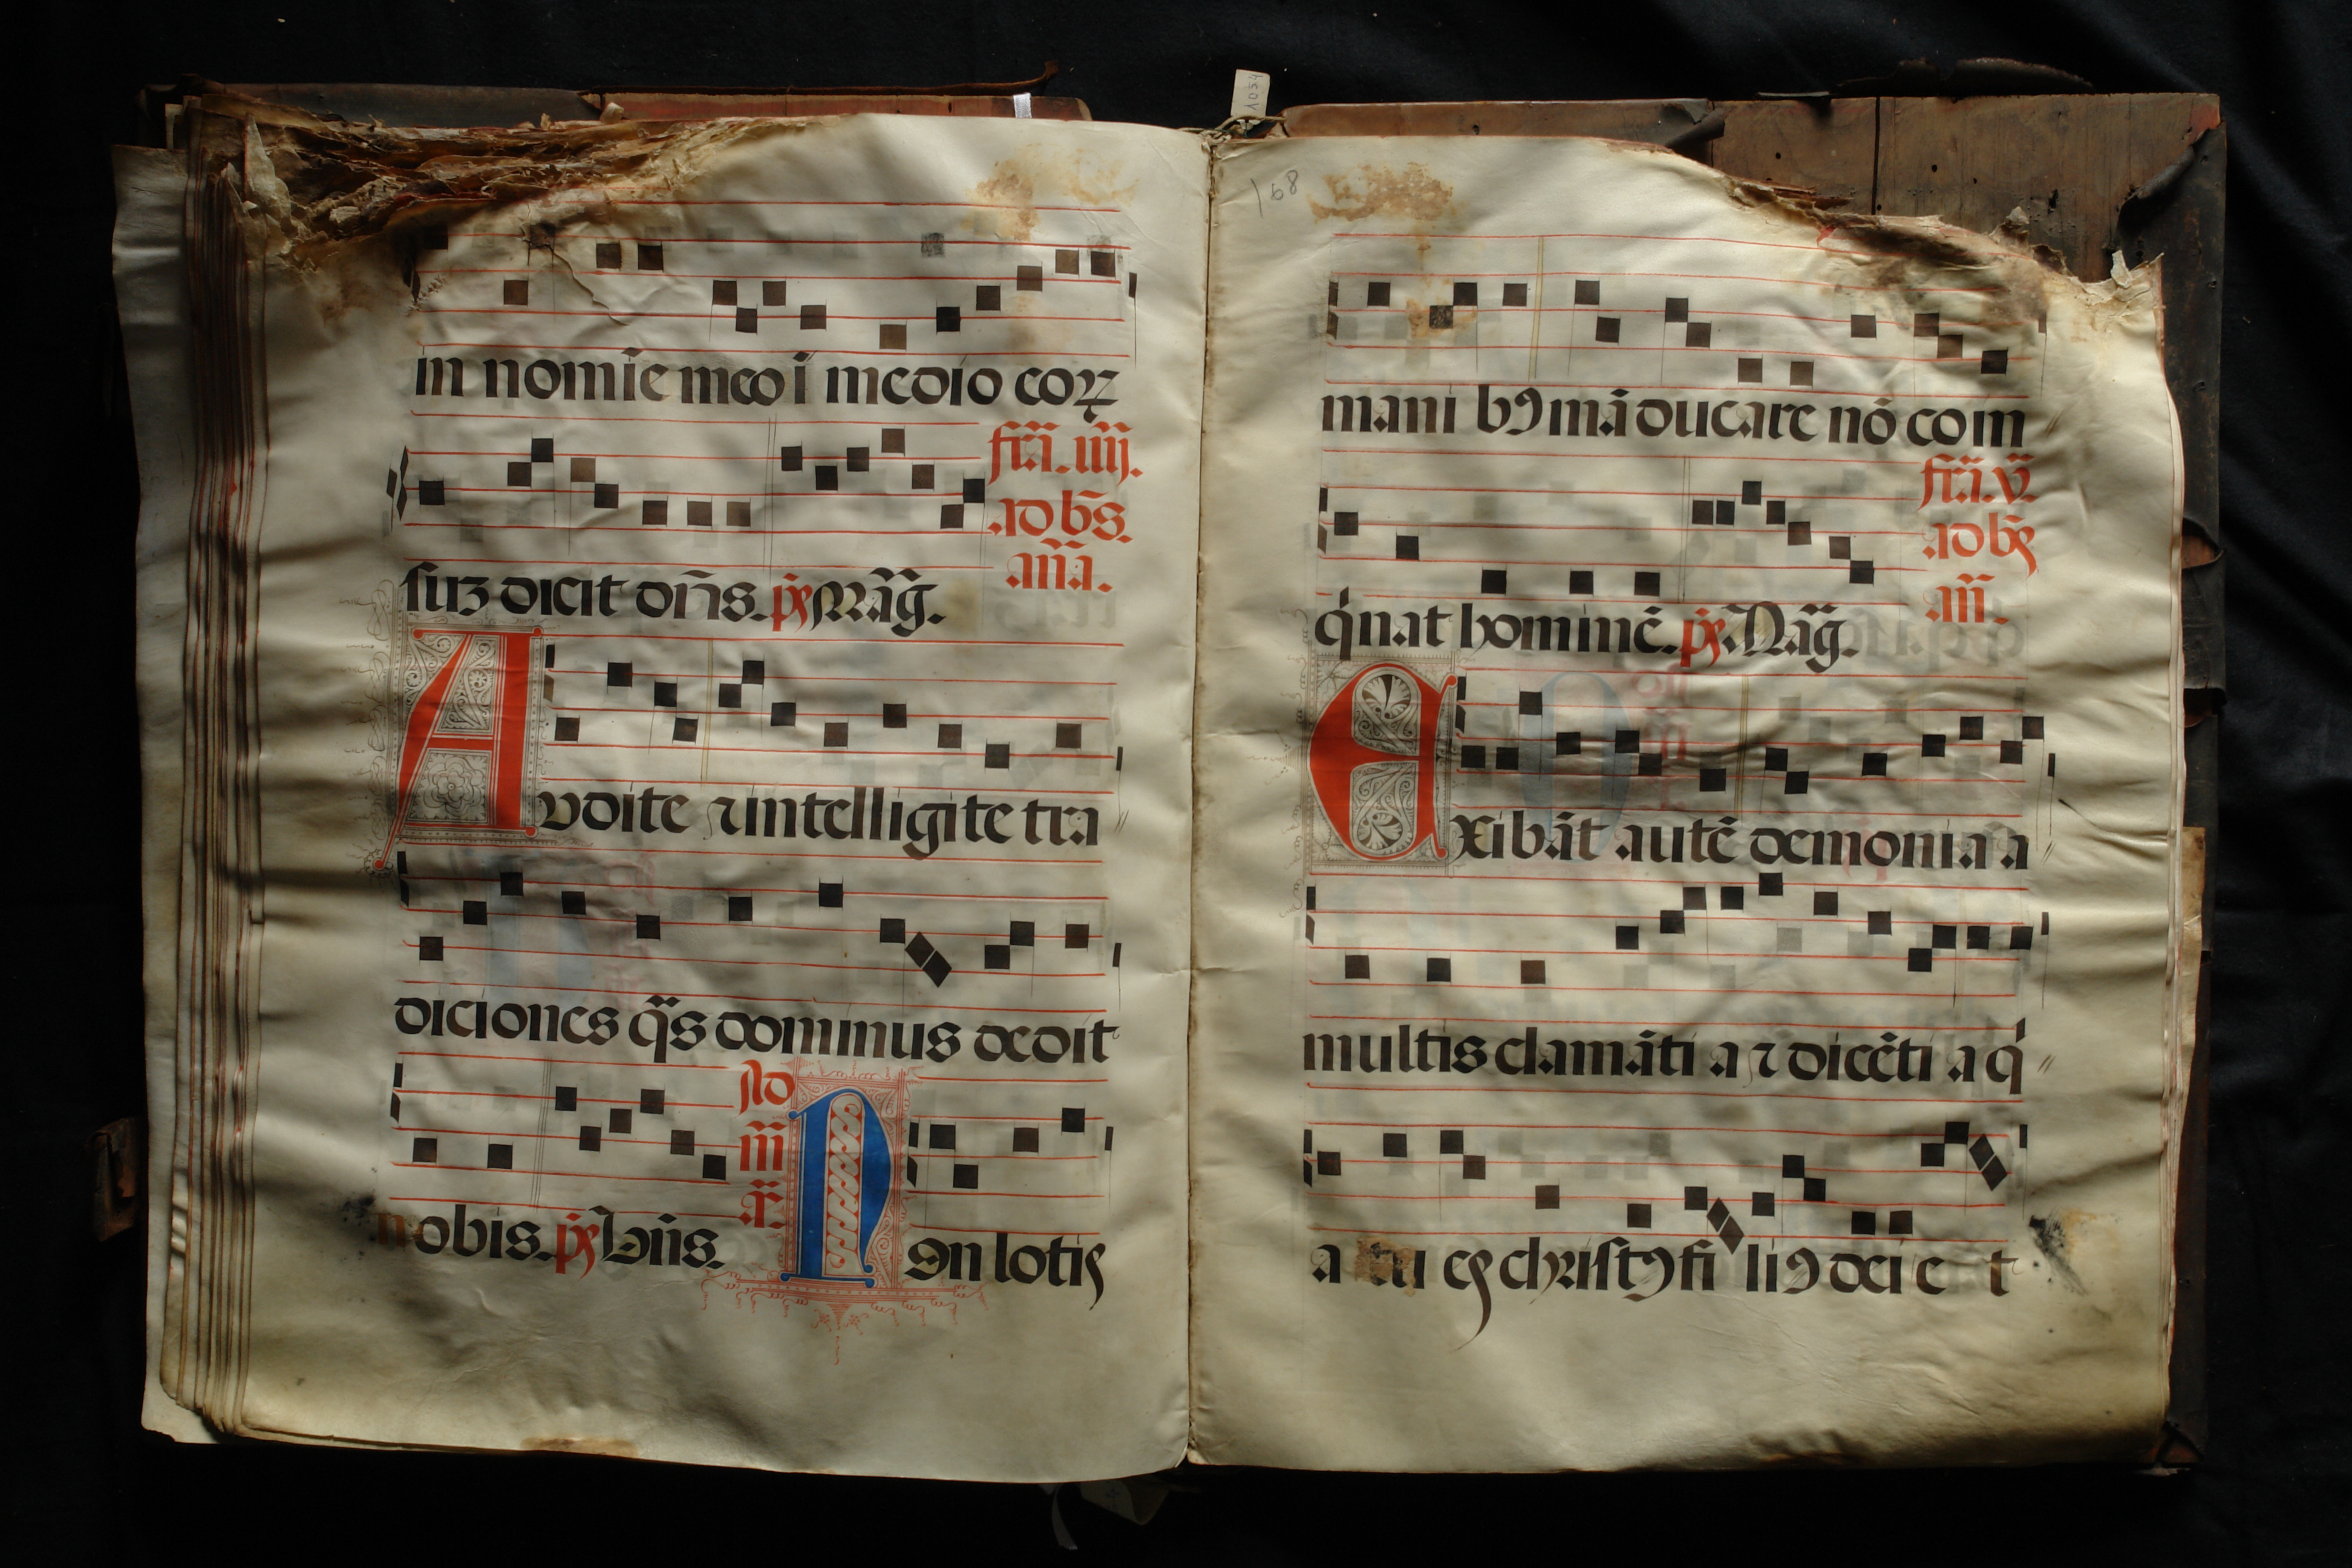 1034
in nomīe meo ī medio coꝝ
fr̄ı. iiij.
ad bn̄s.
an̄a.
suꝫ dicit dn̄s. p̄s Mag̃.
Audite ⁊ intelligite tra
diciones q̃s dominus dedit
nobis. p̄s Bn̄s.
Ad
m̄
a̅.
Nōn lotis
168
manibꝰ māducare nō com
fr̄ı. v.
ad bn̄s
an̄.
q'nat hominē. p̄s Mag̃.
Exibāt autē demonia a
multis clamāti a ⁊ dicēti a q'
a tu es christꝰ filiꝰ dei e t